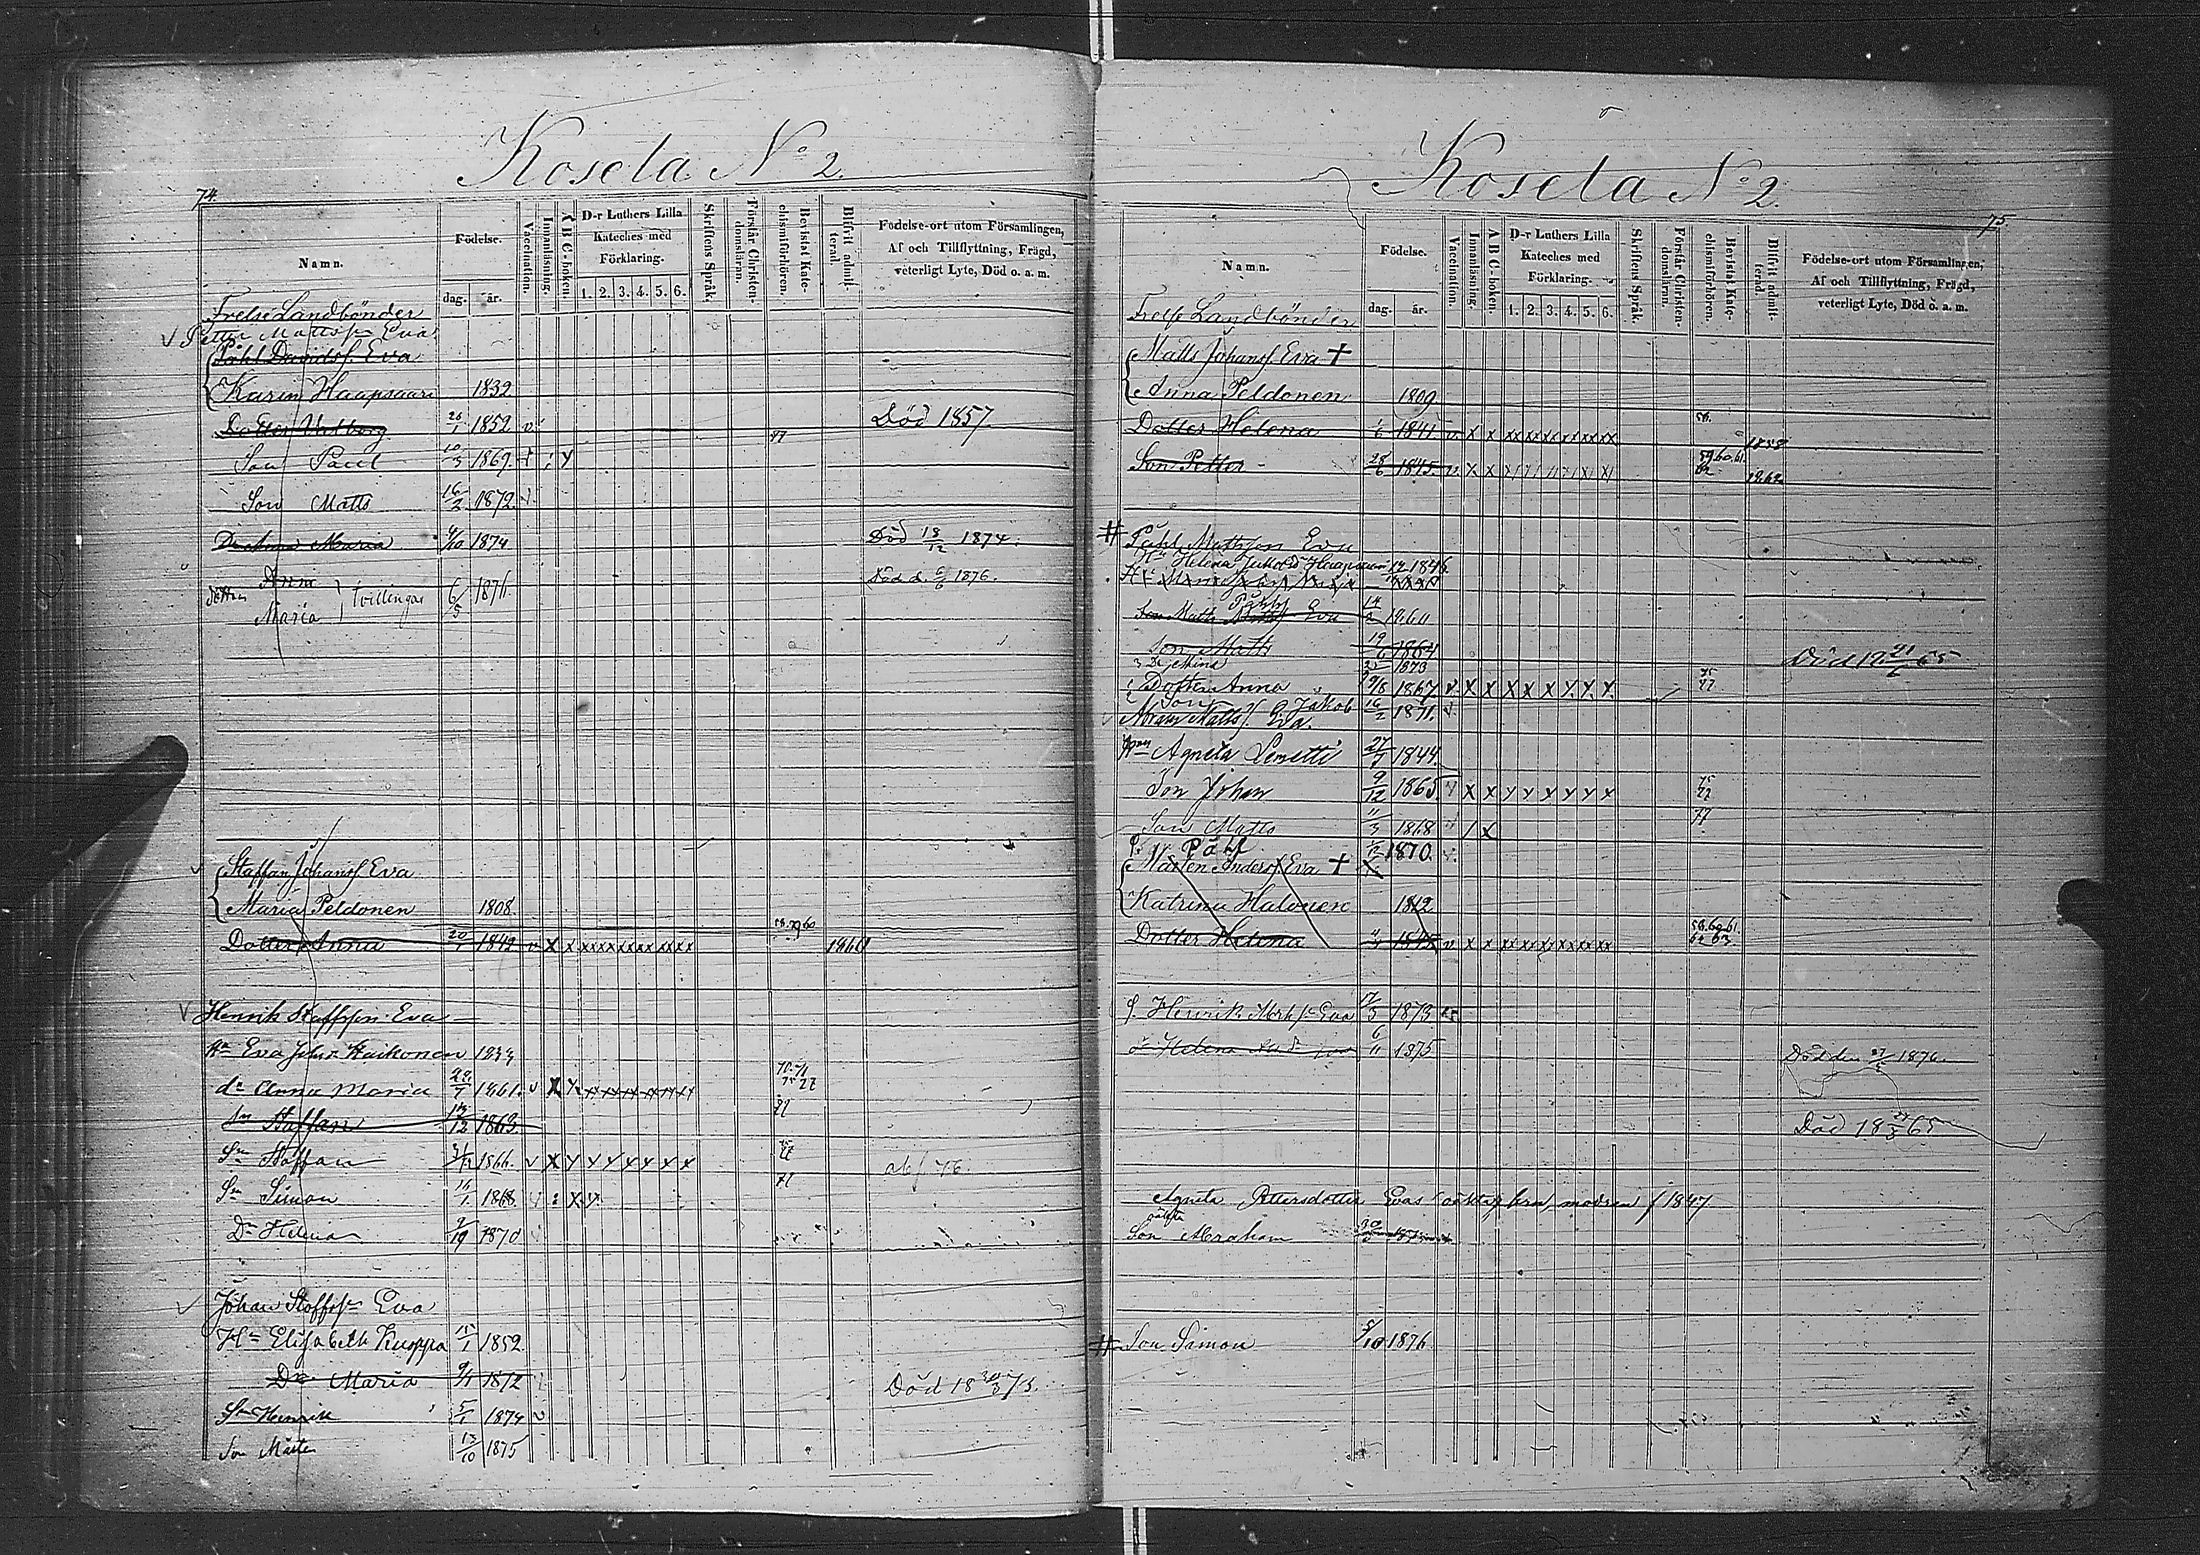 Kosela No 2
74.
Namn.
Födelse.
dag.
år.
Vaccination.
Innanläsning.
A B C-boken.
D-r Luthers Lilla
Kateches med
Förklaring.
1. 2. 3. 4. 5. 6.
Skriftens Språk.
Förstår Christendomsläran.
Bevistat Katechismiförhören.
Blifvit admitterad.
Födelse-ort utom Församlingen,
Af och Tillflyttning, Frägd,
veterligt Lyte, Död o. a. m.
Frelse Landbönder
Petter Mattss. Eva
Påhl Davidss. Eva
Karin Haapsaari 1832
Dotter Valborg 26/1 1852 v Död 1857
Son Paul 10/3 1869 77
Son Matts 16/2 1872
Maria 4/10 1874 Död 18/12 1874.
Anna
Död d. 6/6 1876.
dotter tvillingar 6/5 1876
Maria
Staffan Johanss. Eva
Maria Peldonen 1808
Dotter Anna 20/1 1842 v x x xx xx xx xx xx xx 58.59.60 1860
Henrik Staffsson Eva
Hu Eva Johsdr Haikonen 1833
dr Anna Maria 22/7 1861. v X
Sn Staffan 13/12 1863
Sn Staffan 1866. v X Y Y Y Y x x x abf 76.
Sn Simon 1868.
Dr Helena 1870
Johan Staffss. Eva
Hu Elisabeth Kuoppa 15/1 1852
Dr Maria 9/1 1872 Död 18 30/3 73.
Sn Henrik 5/1 1874 v
Son Mårten 13/10 1875
Kosela No 2.
75.
Namn.
Födelse.
dag.
år.
Vaccination.
Innanläsning.
A B C-boken.
D-r Luthers Lilla
Kateches med
Förklaring.
1. 2. 3. 4. 5. 6.
Skriftens Språk.
Förstår Christendomsläran.
Bevistat Katechismiförhören.
Blifvit admitterad.
Födelse-ort utom Församlingen,
Af och Tillflyttning, Frägd,
veterligt Lyte, Död o. a. m.
Frelse Landbönder
Matts Johanss. Eva †
Anna Peldonen 1809
Dotter Helena 1841 v x x xx xx xx xx xx xx 58. 1858
Son Petter 28/6 1845 v 59.60.61. 62 1862
# Påhl Mattsson Eva
Hu Helena 1846
Son Matts Påhlss. Eva 14/2 1860
Son Matts 19/6 1864 Död 18 21/2 65
Dr Mina 1873
Dotter Anna 9/8 1867 v x x x x x x x x 75 77
Son Jakob 16/2 1871. v
Abram Mattss. Eva.
Hu Agneta Lemetti 27/7 1844
Son Johan 9/12 1865 v x x x x x x x x 75 77
Son Matts 11/3 1868 v 77
S. Påhl 1870.
Mårten Anderss. Eva †
Katrina Halonen 1812
Dotter Helena 1845 v x x xx xx xx xx xx xx 58.60.61. 62 63
S. Henrik Eva 1873
Helena 6/11 1875 Död den 27/5 1876.
Död 18 65
Agneta Pettersdotter Evas oäkta modren f 1847
oäkta
Son Abraham
# Son Simon 5/10 1876